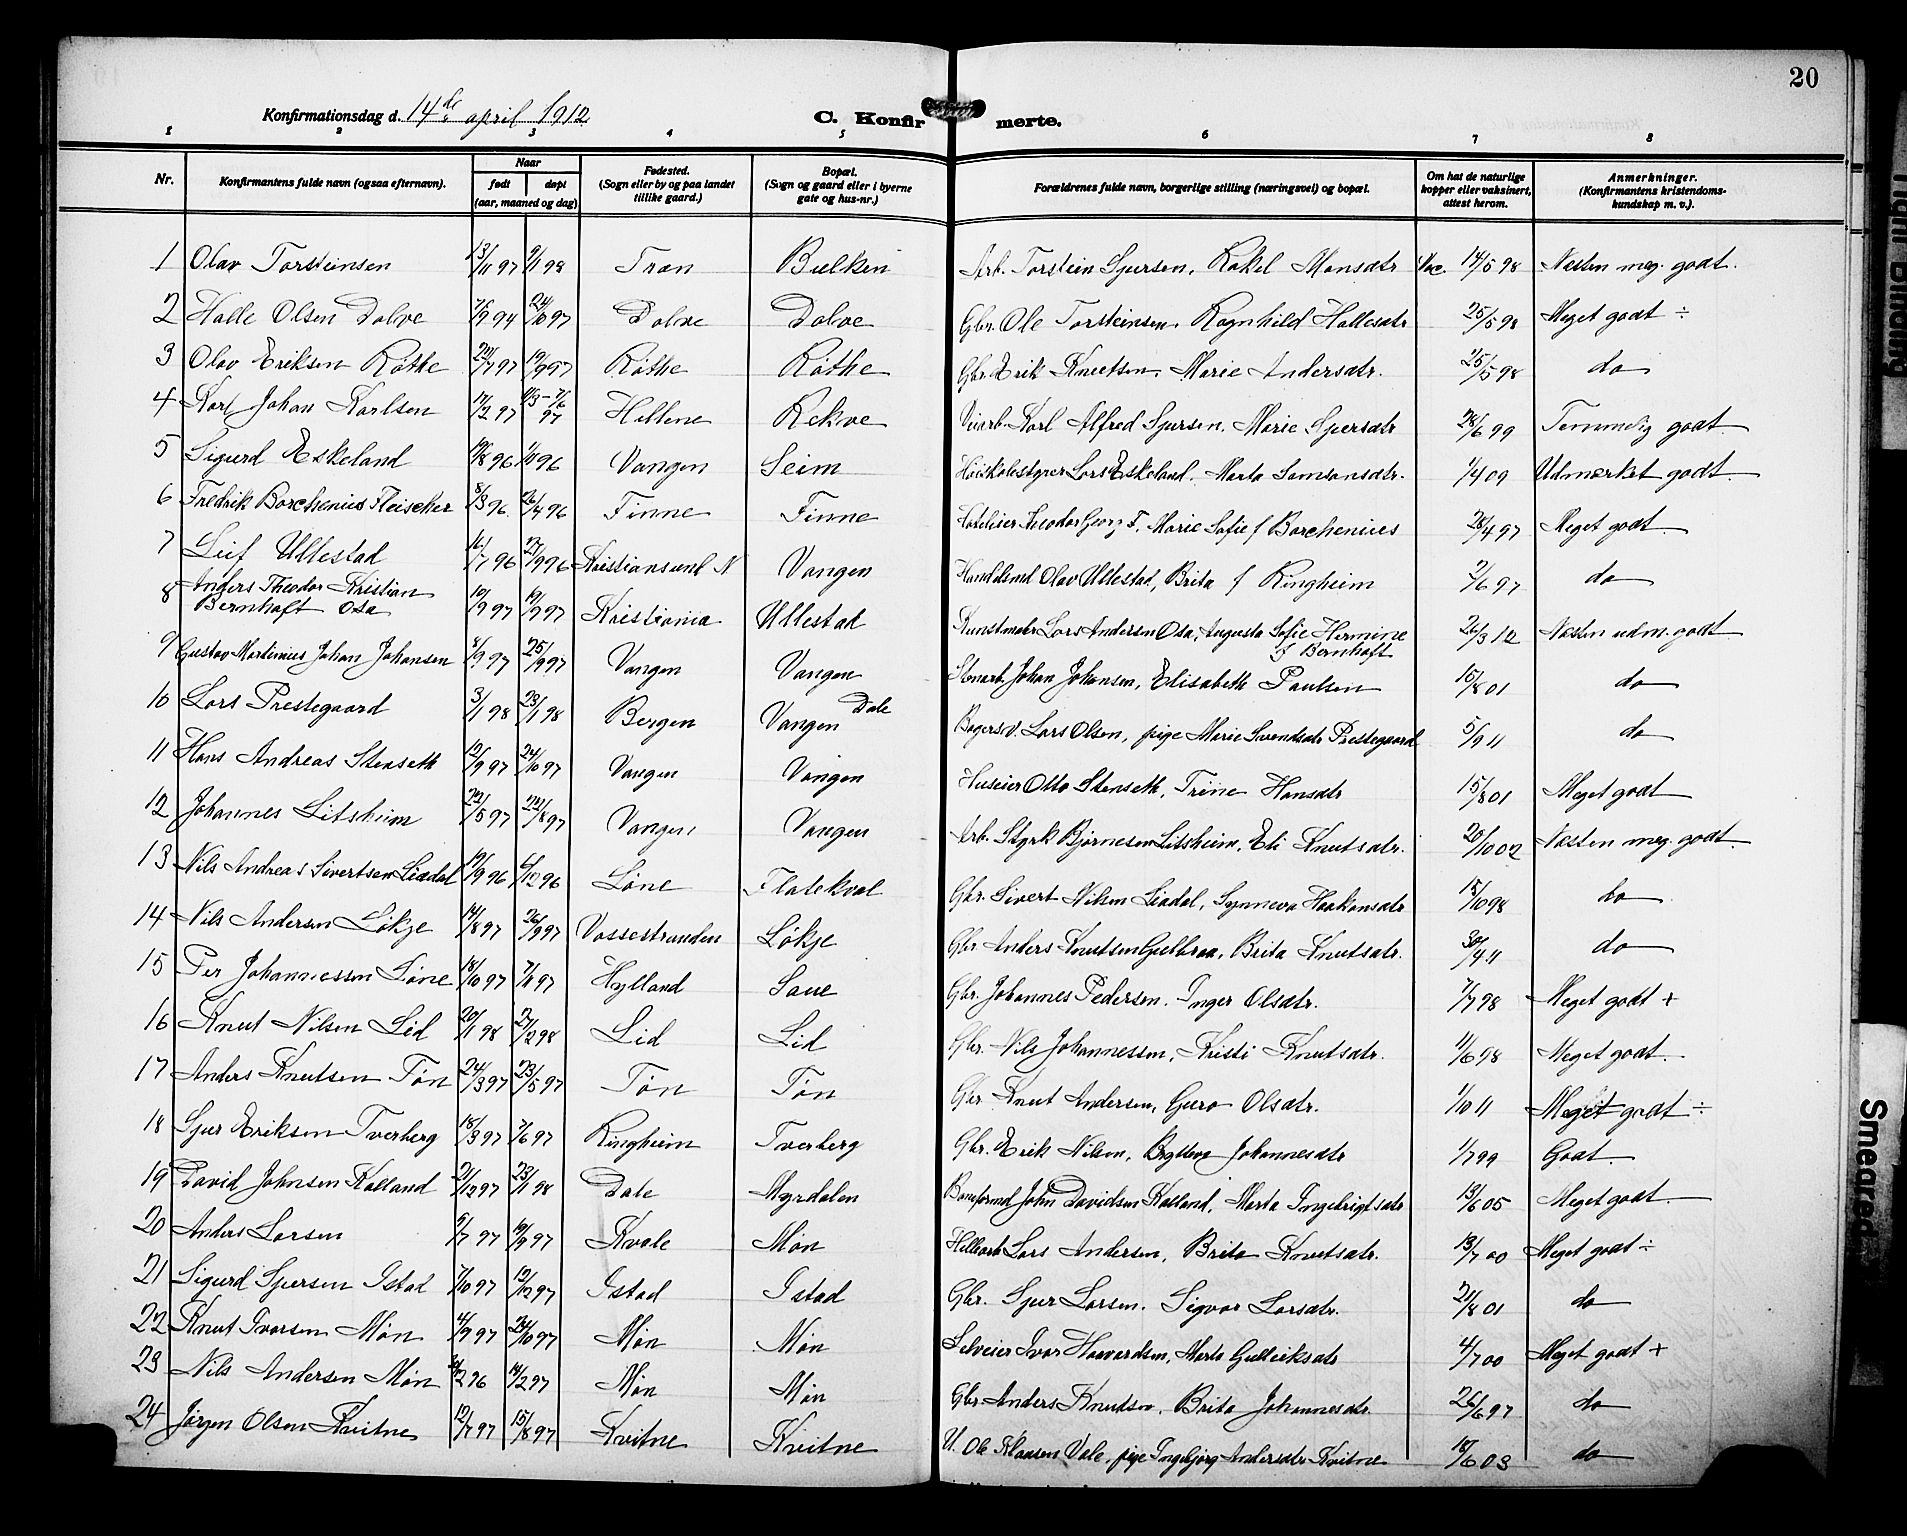 20
Konfirmationsdag d. 14de april 1912
C. Konfirmerte.
1 2 3 4 5 6 7 8
Nr.
Konfirmantens fulde navn (ogsaa efternavn).
Naar
født døpt
(aar, maaned og dag)
Fødested.
(Sogn eller by og paa landet
tillike gaard.)
Bopæl.
(Sogn og gaard eller i byerne
gate og hus-nr.)
Forældrenes fulde navn, borgerlige stilling (næringsvei) og bopæl.
Om hat de naturlige
kopper eller vaksinert,
attest herom.
Anmerkninger.
(Konfirmantens kristendoms-
kundskap m. v.).
1 Olav Torsteinsen 13/11 97 9/1 98 Tran Bulken Arb. Torstein Sjursen, Rakel Monsdtr Vac. 14/5 98 Næsten meg. godt.
2 Halle Olsen Dolve 7/9 94 24/10 97 Dolve Dolve Gbr. Ole Torsteinsen, Ragnhild Hallesdtr 25/5 98 Meget godt ÷
3 Olav Eriksen Røthe 22/7 97 19/9 97 Røthe Røthe Gbr. Erik Knutsen, Marie Andersdtr. 25/5 98 do
4 Karl Johan Karlsen 17/2 97 4/3-7/6 97 Hellene Rekve Veiarb. Karl Alfred Sjursen, Marie Sjursdtr 28/6 99 Temmelig godt
5 Sigurd Eskeland 19/8 96 1/11 96 Vangen Seim Høiskolestyrer Lars Eskeland, Marta Samsonsdtr. 1/4 09 Udmerket godt
6 Fredrik Borchenius Fleischer 8/3 96 26/4 96 Finne Finne Hoteleier Theodor Georg F, Marie Sofie f Borchenius 28/4 97 Meget godt
7 Leif Ullestad 16/7 96 27/9 96 Kristiansund N Vangen Handelsmd Olav Ullestad, Brita f Ringheim 2/6 97 do
8 Anders Theodor Kristian
Bernhoft Osa 10/2 97 19/9 97 Kristiania Ullestad Kunstmaler Lars Andersen Osa, Augusta Sofie Hermine
f Bernhoft 26/3 12 Næsten udm. godt
9 Gustav Martinius Johan Johansen 8/9 97 25/9 97 Vangen Vangen Stenarb. Johan Johansen, Elisabeth Paulsen 15/8 01 do
10 Lars Prestegaard 3/1 98 23/1 98 Bergen Vangen Dale Bagersv. Lars Olsen, pige Marie Svendsdtr Prestegaard 5/9 11 do
11 Hans Andreas Stenseth 12/9 97 24/10 97 Vangen Vangen Huseier Otto Stenseth, Trine Hansdtr 15/8 01 Meget godt
12 Johannes Litsheim 22/5 97 22/8 97 Vangen Vangen Arb. Styrk Bjørnesen Litsheim, Eli Knutsdtr. 20/10 02 Næsten meg. godt
13 Nils Andreas Sivertsen Liadal 19/9 96 6/12 96 Løne Flatekval Gbr. Sivert Nilsen Liadal, Synneva Haakonsdtr 15/10 98 do
14 Nils Andersen Løkje 14/8 97 26/9 97 Vossestranden Løkje Gbr Anders Knutsen Gulbraa, Brita Knutsdtr. 30/4 11 do
15 Per Johannessen Løne 18/10 97 7/11 97 Hylland Saue Gbr. Johannes Pedersen, Inger Olsdtr. 7/7 98 Meget godt +
16 Knut Nilsen Lid 20/1 98 27/2 98 Lid Lid Gbr. Nils Johannessen, Kristi Knutsdtr. 11/6 98 Meget godt.
17 Anders Knutsen Tøn 24/3 97 23/5 97 Tøn Tøn Gbr Knut Andersen, Guro Olsdtr. 1/10 11 Meget godt ÷
18 Sjur Eriksen Tverberg 18/3 97 7/6 97 Ringheim Tverberg Gbr. Erik Nilsen, Bryteva Johannesdtr 1/7 99 Godt.
19 David Johnsen Kalland 2/12 97 23/1 98 Dale Myrdalen Baneformd John Davidsen Kalland, Marta Ingebrigtsdtr 13/6 05 Meget godt.
20 Anders Larsen 9/7 97 19/9 97 Kvale Møn Lars Andersen, Brita Knutsdtr. 13/7 00 Meget godt ÷
21 Sigurd Sjursen Istad 7/10 97 12/12 97 Istad Istad Gbr. Sjur Larsen, Sigvor Larsdtr. 21/8 01 do
22 Knut Ivarsen Møn 4/9 97 24/10 97 Møn Møn Selveier Ivar Haavardsen, Marta Gulleiksdtr 4/7 00 Meget godt +
23 Nils Andersen Møn 24/12 96 14/2 97 Møn Møn Gbr Anders Knutsen, Brita Johannesdtr. 26/6 97 do
24 Jørgen Olsen Kvitne 12/7 97 15/8 97 Kvitne Kvitne U. Ole Klausen Vale, pige Ingebjørg Andersdtr Kvitne 18/6 03 do
Smeared